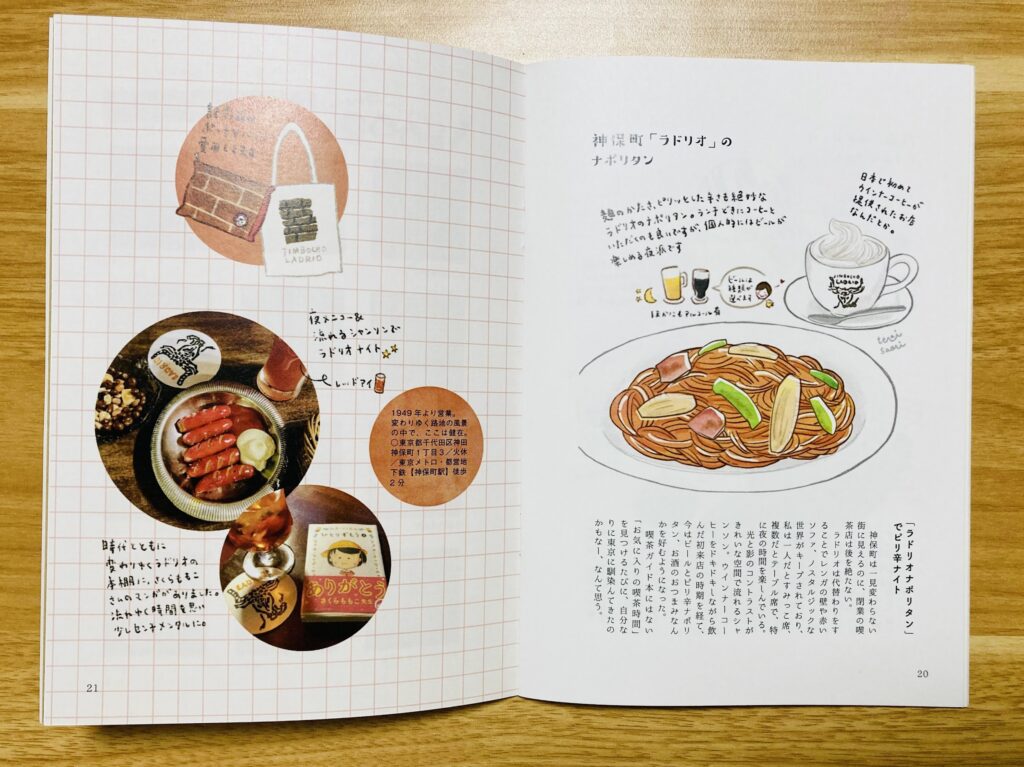 神保町「ラドリオ」の
ナポリタン
麺のかたさ、ピリッとした辛さも絶妙な
ラドリオのナポリタン。ランチどきにコーヒーと
いただくのも良いですが、個人的にはビールが
楽しめる夜派です
日本で初めて
ウインナーコーヒーが
提供されたお店
なんだとか。
ビールは
種類が
選べます
ほかにもアルコール有
JIMBOCHO
LADRIO
「ラドリオナポリタン」
でピリ辛ナイト
神保町は一見変わらない
街に見えるのに、閉業の喫
茶店は後を絶たない。
ラドリオは代替わりをす
ることでレンガの壁や赤い
ソファ、ノスタルジックな
世界がキープされており、
私は一人だとすみっこ席、
複数だとテーブル席で、特
に夜の時間を楽しんでいる。
光と影のコントラストが
きれいな空間で流れるシャ
ンソン、ウインナーコー
ヒーをドキドキしながら飲
んだ初来店の時期を経て、
今はビールとピリ辛ナポリ
タン、お酒のおつまみなん
かを好むようになった。
喫茶ガイド本にはない
「お気に入りの喫茶時間」
を見つけるたびに、自分な
りに東京に馴染んできたの
かもなー、なんて思う。
20
JIMBOCHO
LADRIO
夜メニュー&
流れるシャンソンで
ラドリオナイト
レッドアイ
1949年より営業。
変わりゆく路地の風景
の中で、ここは健在。
〇東京都千代田区神田
神保町1丁目3/火休
/東京メトロ・都営地
下鉄【神保町駅】徒歩
2分
ひとりずもう
ありがとう
さくらももこ先生
時代とともに
変わりゆくラドリオの
本棚に、さくらももこ
さんのマンガがありました。
流れゆく時間を思い
少しセンチメンタルに。
21